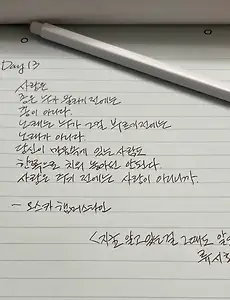 Day 13
사랑은
종은 누가 울리기 전에는
종이 아니다.
노래는 누가 그걸 부르기 전에는
노래가 아니다.
당신의 마음속에 있는 사랑도
한쪽으로 치워 놓아선 안된다.
사랑은 주기 전에는 사랑이 아니니까.
- 오스카 햄머스타인
<지금 알고 있는걸 그때도 알
류시